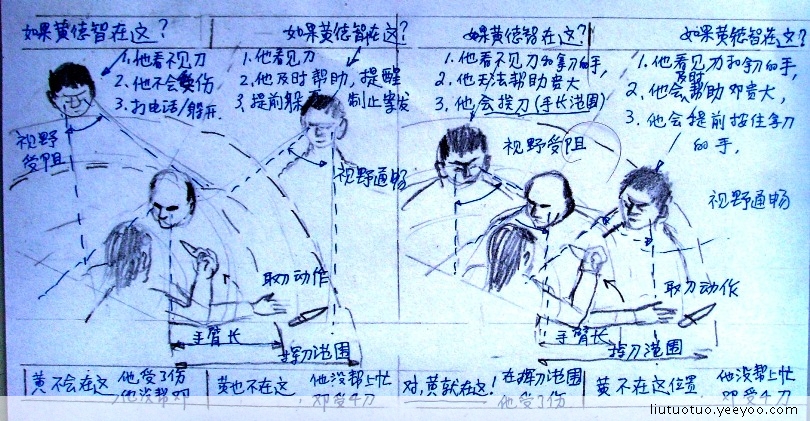 如果黄德智在这?
1.他看不见刀
2.他不会受伤
3.打电话/躲开.
视野
受阻
如果黄德智在这?
1.他看见刀
2.他及时帮助,提醒
3.提前躲 制止案发
视野通畅
取刀动作
手臂长
挥刀范围
黄不会在这 他受了伤
他没帮邓
黄也不在这 他没帮上忙
邓受4刀
如果黄德智在这?
1.他看不见刀和拿刀的手,
2.他无法帮助贵大
3.他会挨刀(手长范围)
视野受阻
如果黄德智在这?
1.他看见刀和拿刀的手,
2.他会及时帮助邓贵大,
3.他会提前按住拿刀
的手,
视野通畅
取刀动作
手臂长
挥刀范围
对,黄就在这! 在挥刀范围
他受了伤
黄不在这位置 他没帮上忙
邓受4刀
liutuotuo.yeeyoo.com